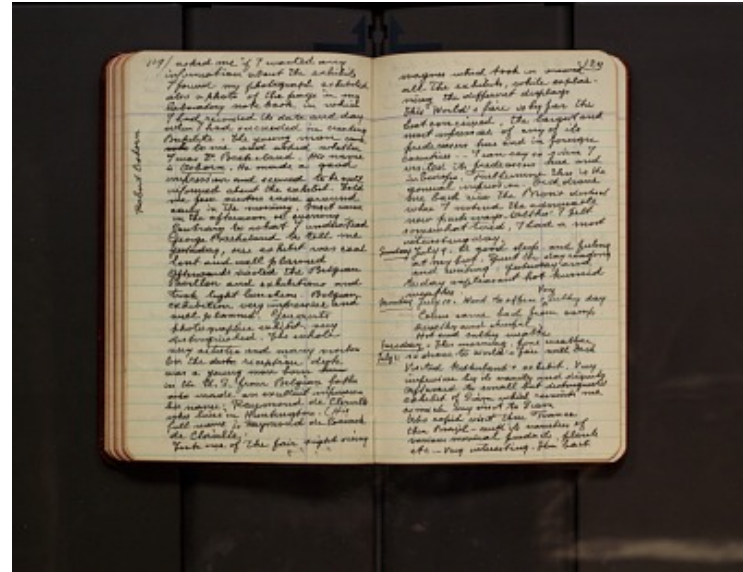 119/ asked me if I wanted any
information about the exhibits
I found my photograph exhibited
also a photo of the page in my
laboratory note book in which
I had recorded the date and day
when I had succeeded in creating
Bakelite. The young man
to me and asked whether
I was Dr. Baekeland. His name
is Osborn. He made a good
impression and seemed to be well
informed about the exhibit. Told
me few visitors come around
early in the morning. Most come
in the afternoon or evening
Contrary to what I understood
George Baekeland to tell me
yesterday, our exhibit was excel
lent and well planned
Afterwards visited the Belgian
Pavilion and exhibitions and
took light luncheon. Belgian
exhibition very impressive and
well planned.
photographic exhibit very
distinguished. The whole
very artistic and many
En the reception desk
was a young
in the U.S. from Belgian father
who made an excellent impression
his name: Raymond de
who lives in Huntington. (His
full name is Raymond de
de
Took one of the fair sight seeing
Osborn
120
wagons which took in
all the exhibits, while explai-
ning the different displays
This World's fair is by far the
best conceived, the largest and
most impressive of any of its
predecessors here and in foreign
countries. I can say so since I
visited its predecessors here and
in Europe. Furthermore this is the
general impression. Dick drove
me back via the Bronx
what I the admirable
new park ways. Altho' I felt
somewhat tired, I had a most
interesting day.
Sunday July 9. A good sleep and feeling
at my best. Spent the day reading
and writing. Yesterday and
to-day unpleasant hot humid
weather. Very
Monday July 10. Went to office, sultry day
Celine came back from camp
healthy and cheerful.
Hot and sultry weather
Tuesday July 11. This morning, fine weather,
so drove to World's fair with Dick
Visited Netherland's exhibit. Very
impressive by its variety and dignity
Afterward to small but distinguished
exhibit of Siam which reminds me
so much my visit to Siam
Also rapid visit thru France
then Brazil - with its varieties of
various national products, plants
etc - Very interesting. Then back